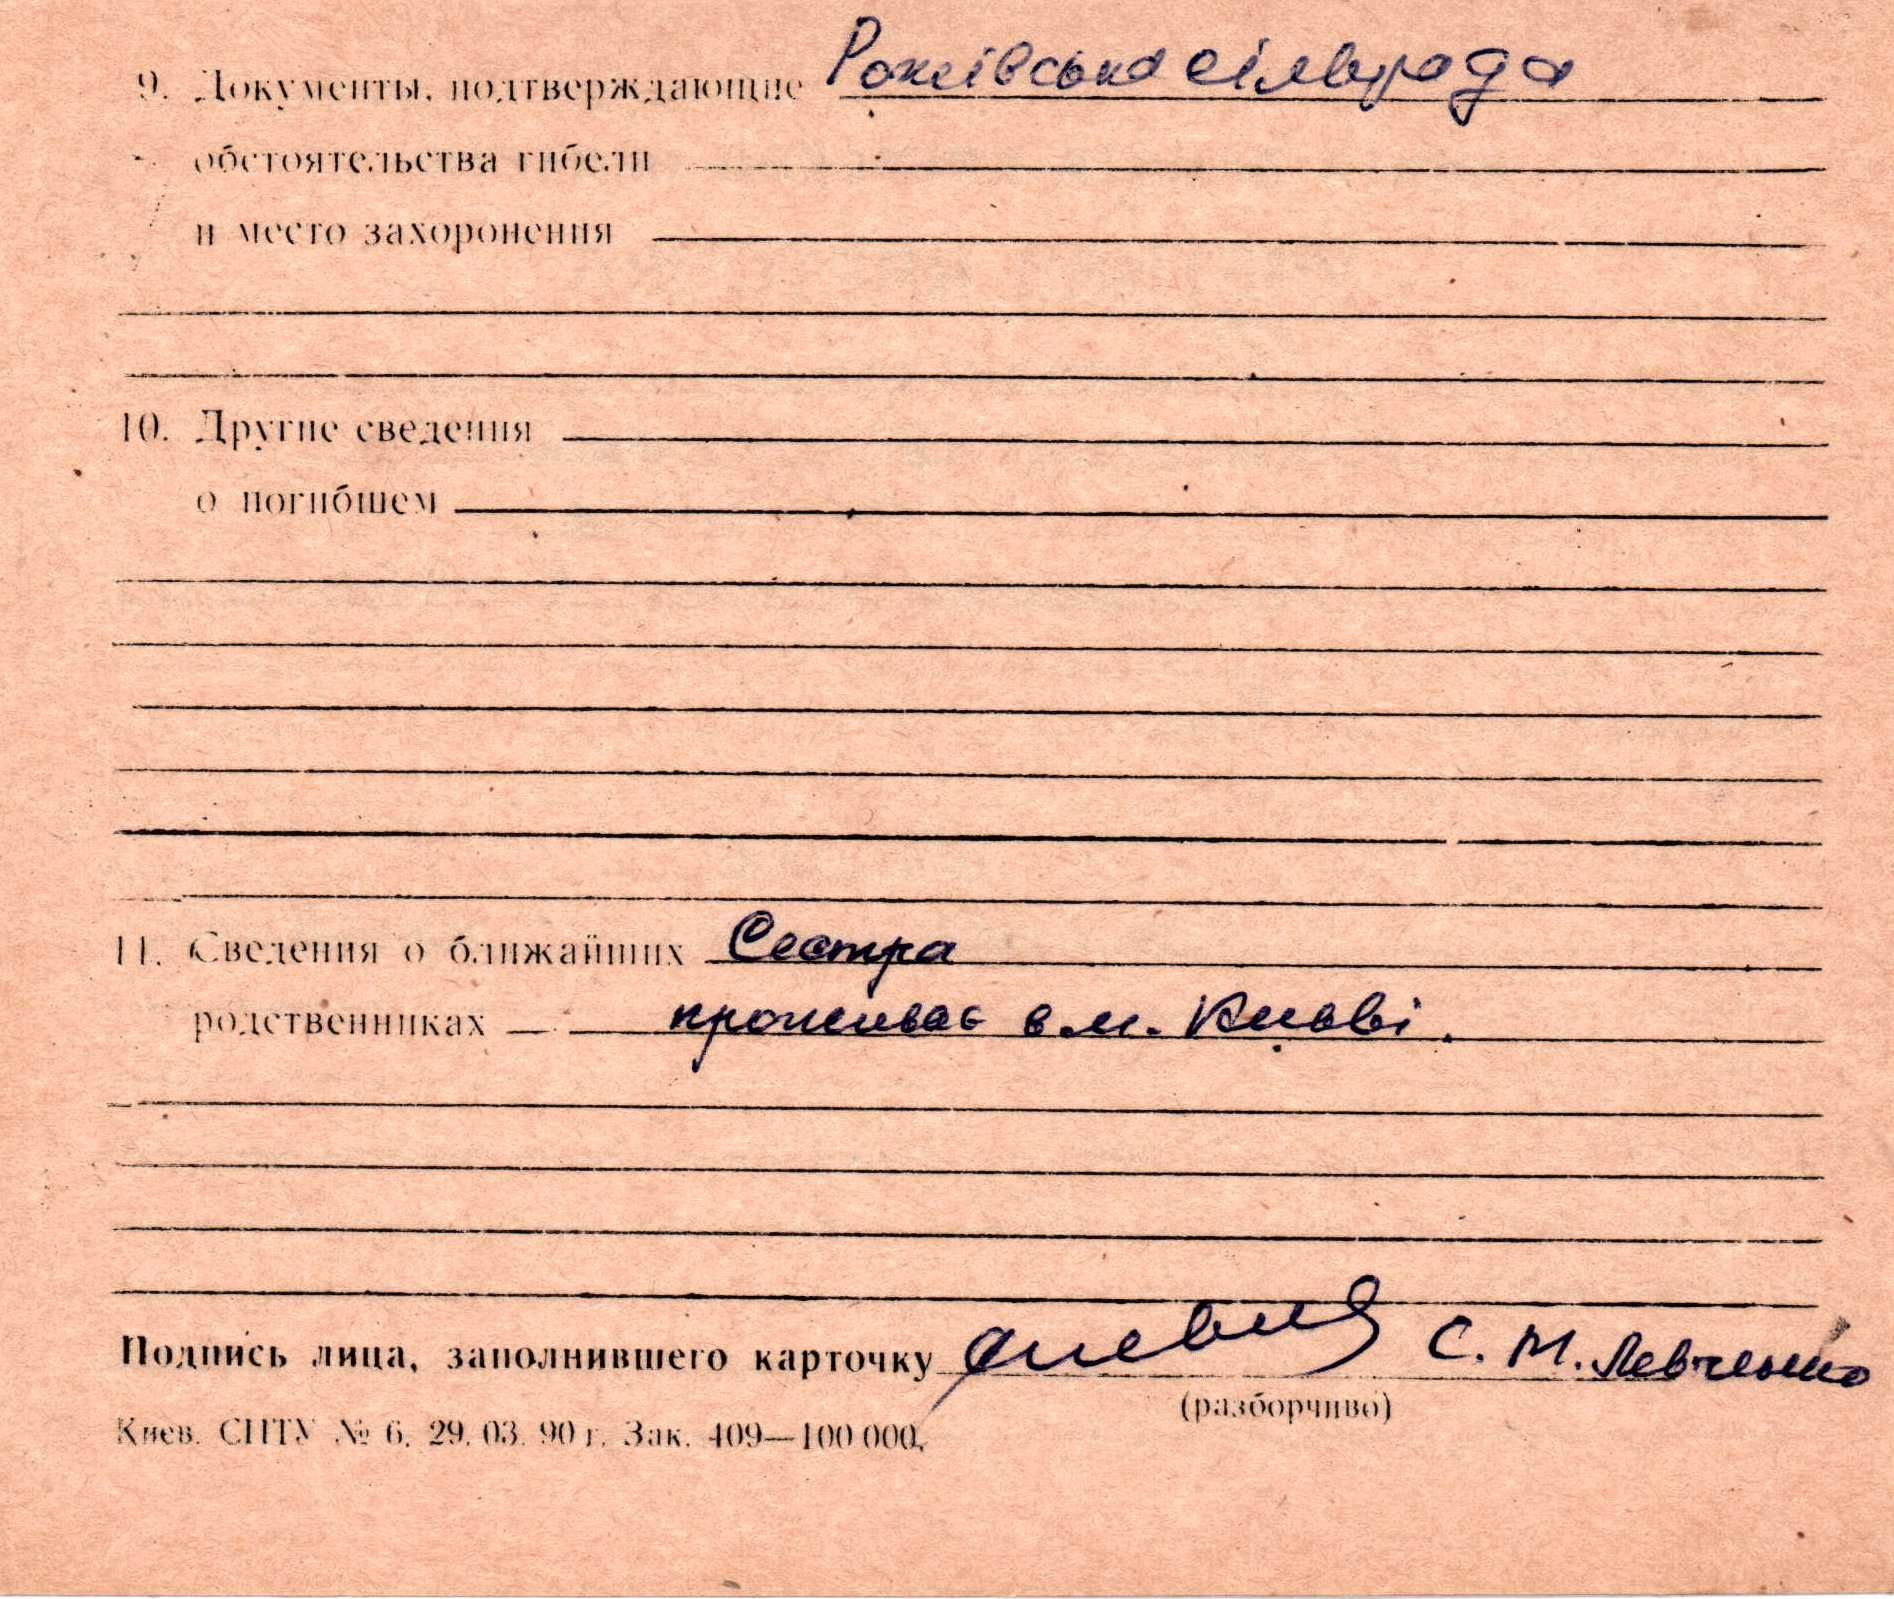 9. Документы, подтверждающие Рожівська сільрада
обстоятельства гибели
и место захоронения
10. Другие сведения
о погибшем
11. Сведения о ближайших Сестра
родственниках проживає в м. Києві.
Подпись лица, заполнившего карточку С. М. Левченко
(разборчиво)
Киев. СПТУ № 6. 29. 03. 90 г. Зак. 409—100 000.